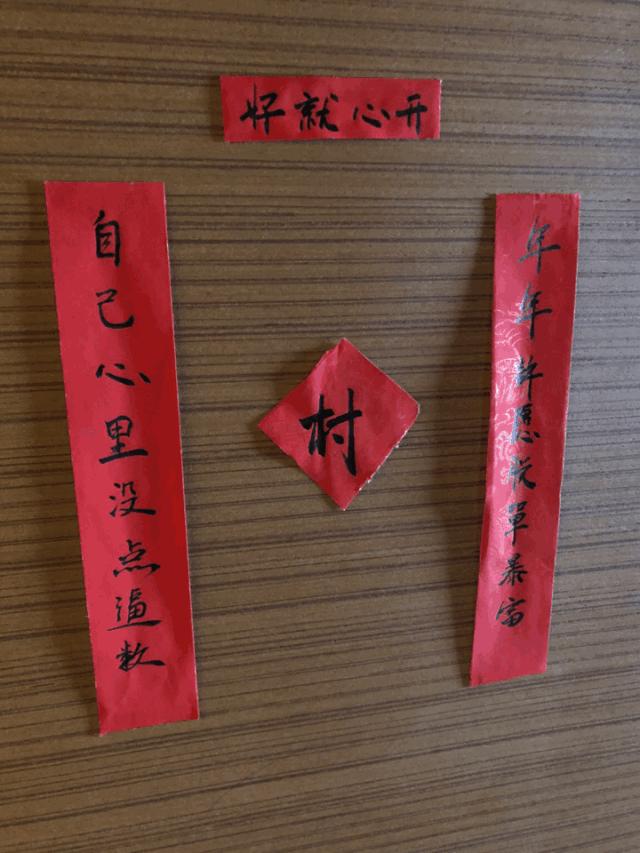 开心就好
年年許愿脱單暴富
自己心里没点逼数
村